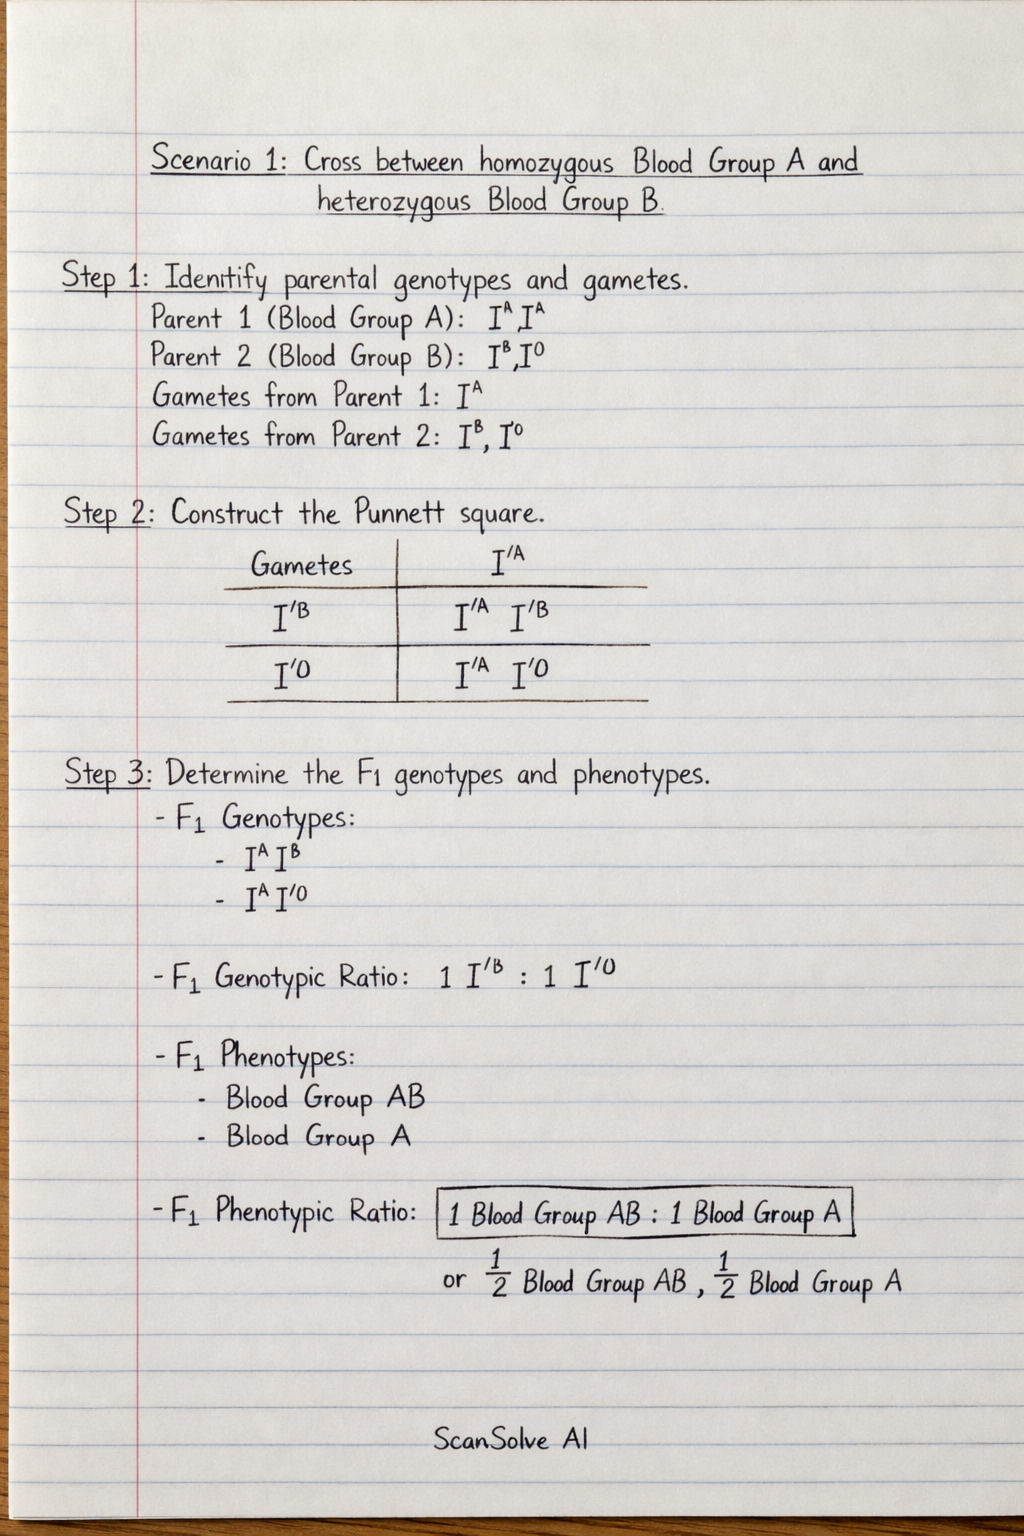 Scenario 1: Cross between homozygous Blood Group A and
heterozygous Blood Group B.
Step 1: Identify parental genotypes and gametes.
Parent 1 (Blood Group A): Iᴬ,Iᴬ
Parent 2 (Blood Group B): Iᴮ,Iᴼ
Gametes from Parent 1: Iᴬ
Gametes from Parent 2: Iᴮ, Iᴼ
Step 2: Construct the Punnett square.
Gametes I′ᴬ
I′ᴮ I′ᴬ I′ᴮ
I′ᴼ I′ᴬ I′ᴼ
Step 3: Determine the F₁ genotypes and phenotypes.
- F₁ Genotypes:
- Iᴬ Iᴮ
- Iᴬ I′ᴼ
- F₁ Genotypic Ratio: 1 I′ᴮ : 1 I′ᴼ
- F₁ Phenotypes:
- Blood Group AB
- Blood Group A
- F₁ Phenotypic Ratio: 1 Blood Group AB : 1 Blood Group A
or 1/2 Blood Group AB , 1/2 Blood Group A
ScanSolve AI